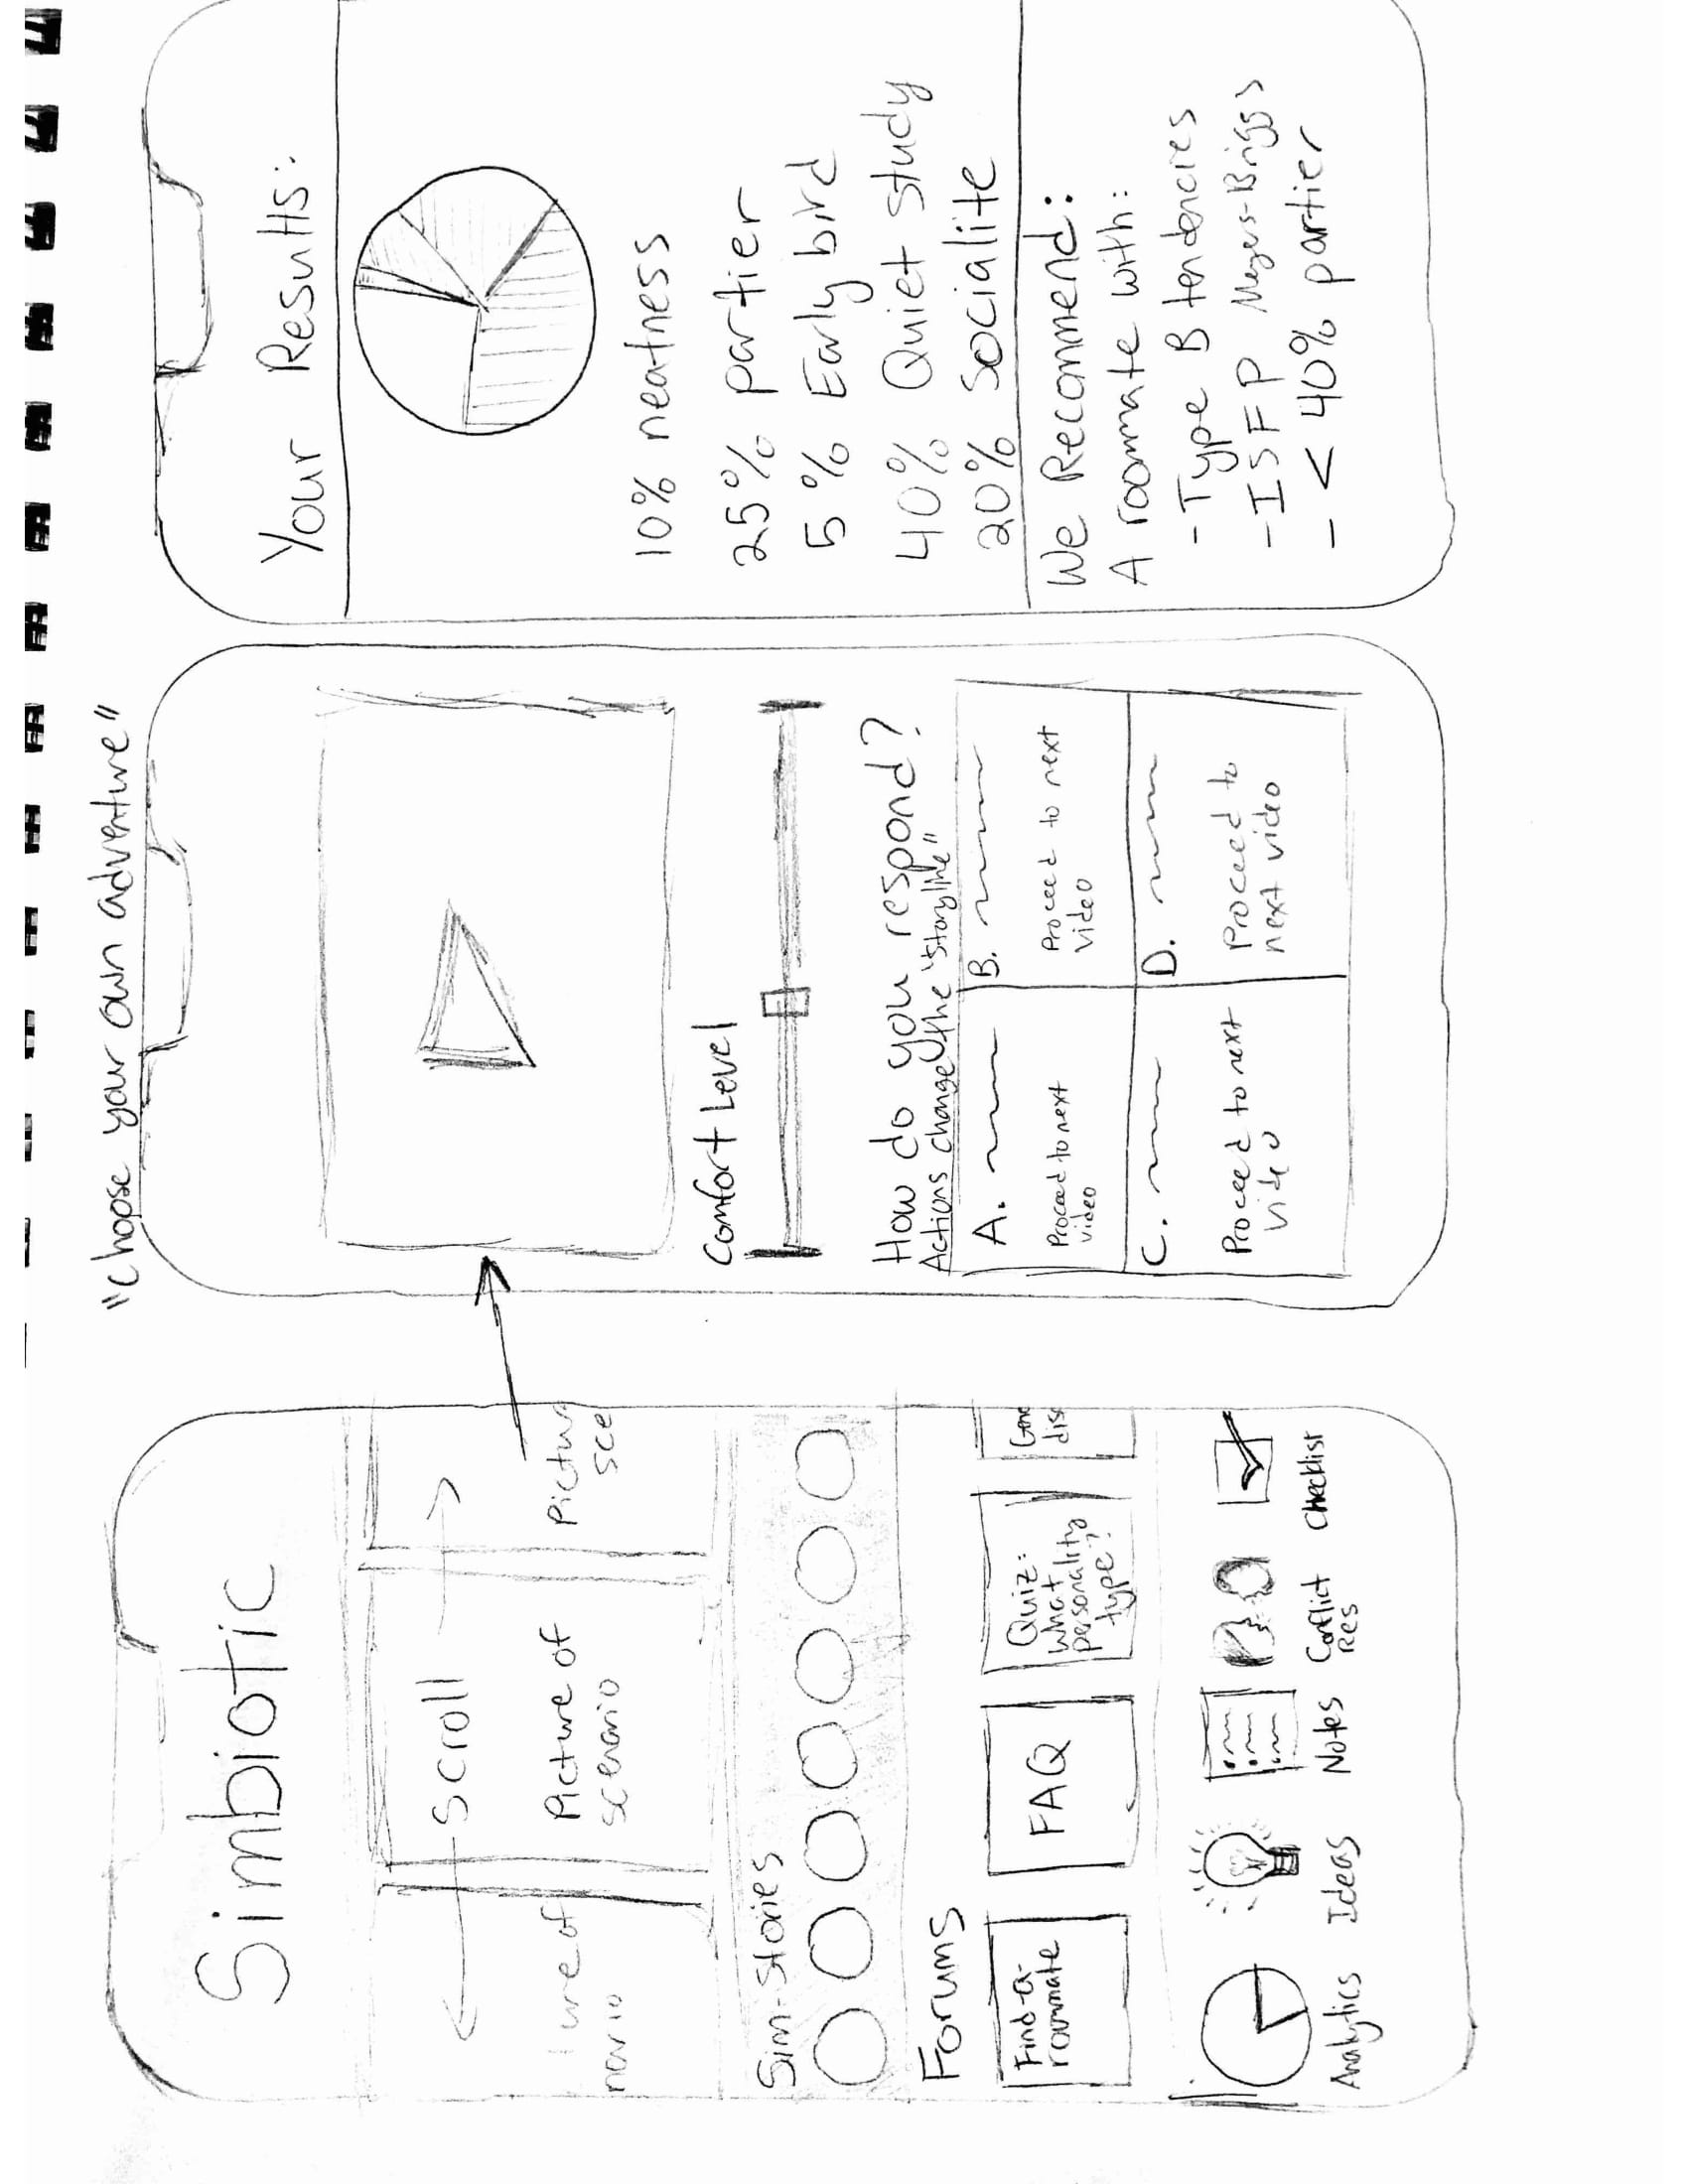 Simbiotic
Scroll
ure of
nario
Picture of
scenario
Pictur
sce
Sim-Stories
Forums
Find-a-
roommate
FAQ
Quiz:
What
personality
type?
Gene
disc
Analytics
Ideas
Notes
Conflict
Res
Checklist
"Choose your own adventure"
Comfort Level
How do you respond?
Actions change the "storyline"
A.
Proceed to next
video
B.
Proceed to next
video
C.
Proceed to next
video
D.
Proceed to
next video
Your Results:
10% neatness
25% partier
5% Early bird
40% Quiet study
20% Socialite
We Recommend:
A roommate with:
- Type B tendencies
- ISFP Meyers-Briggs
- < 40% partier